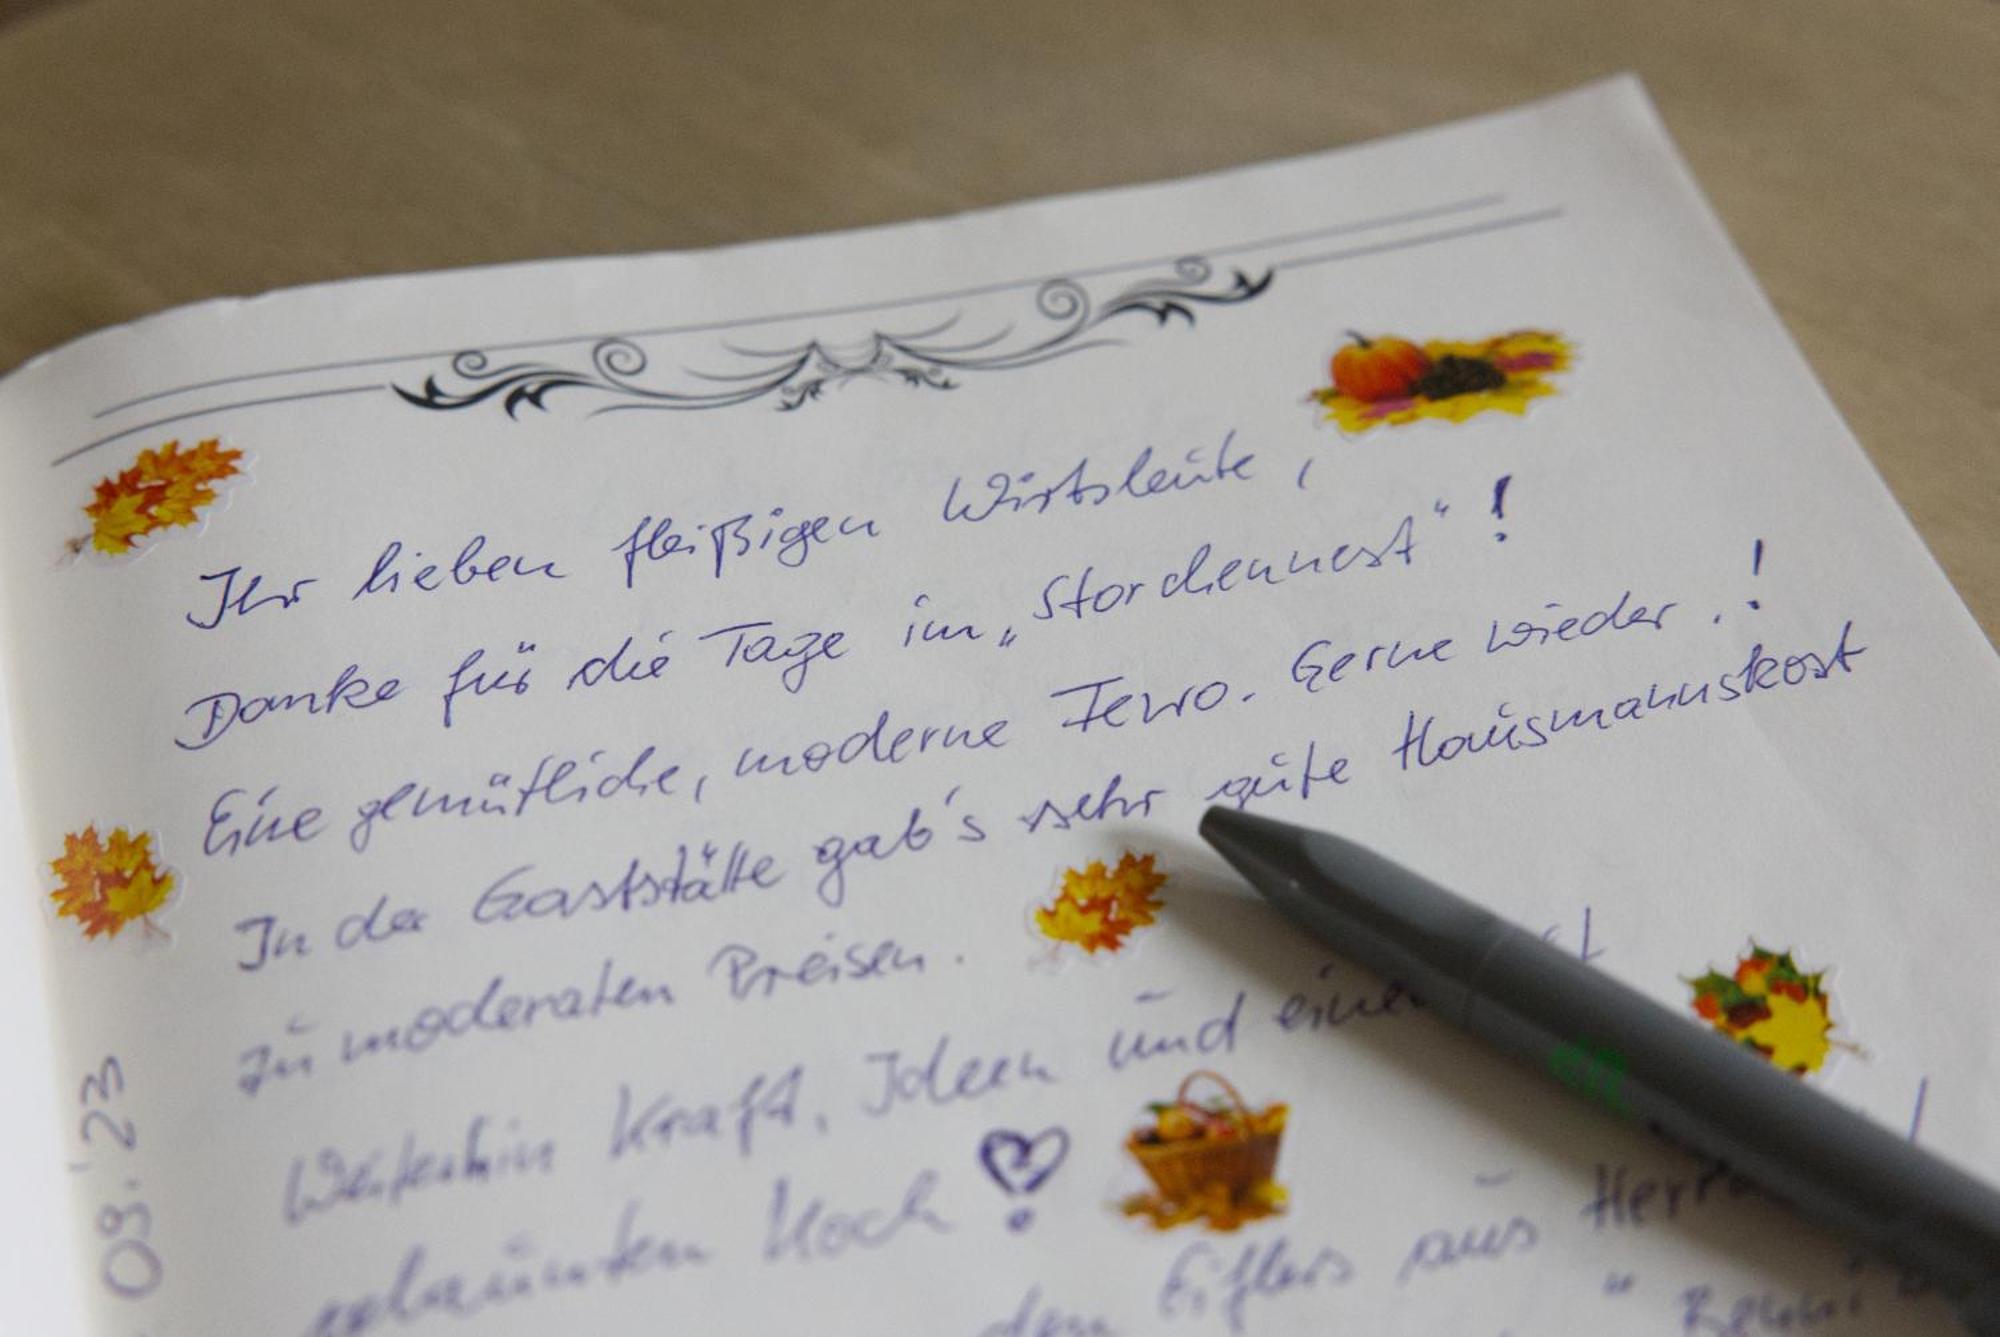 Ihr lieben fleißigen Wirtsleute,
Danke für die Tage im „Storchennest"!
Eine gemütliche, moderne Fewo. Gerne wieder.!
In der Gaststätte gab's sehr gute Hausmannskost
zu moderaten Preisen.
Weiterhin Kraft, Ideen und einen
gelaunten Koch
den Eiflers aus
09.'23